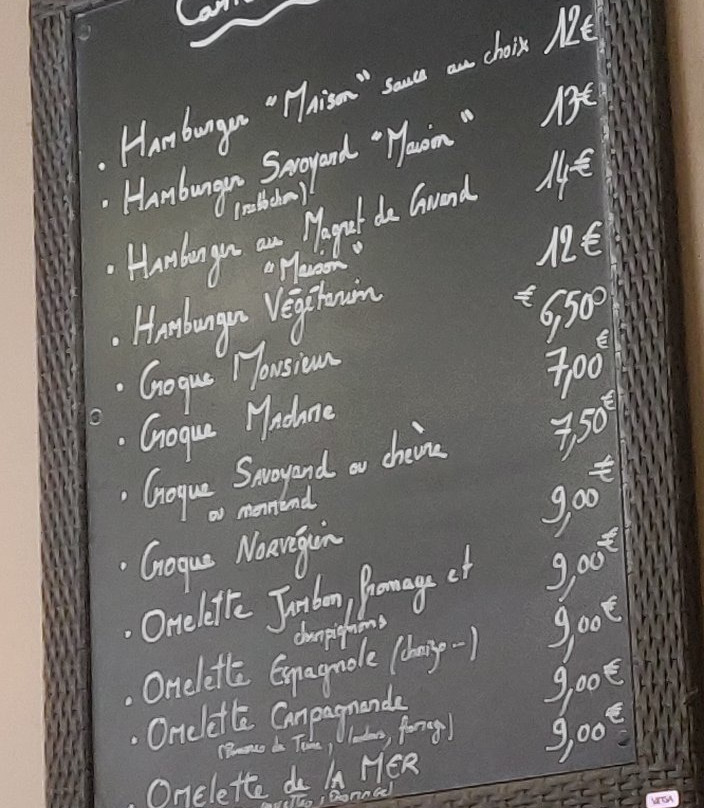 • Hamburger "Maison" sauce au choix 12€
• Hamburger Savoyard "Maison" 13€
(reblochon)
• Hamburger au Magret de Canard 14€
"Maison"
• Hamburger Végétarien 12€
• Croque Monsieur € 6,50
• Croque Madame 7,00€
• Croque Savoyard ou chèvre 7,50€
ou montand
• Croque Norvégien 9,00€
• Omelette Jambon, fromage et 9,00€
champignons
• Omelette Espagnole (chorizo --) 9,00€
• Omelette Campagnarde 9,00€
(Pommes de Terre, lardons, fromage)
• Omelette de la MER 9,00€